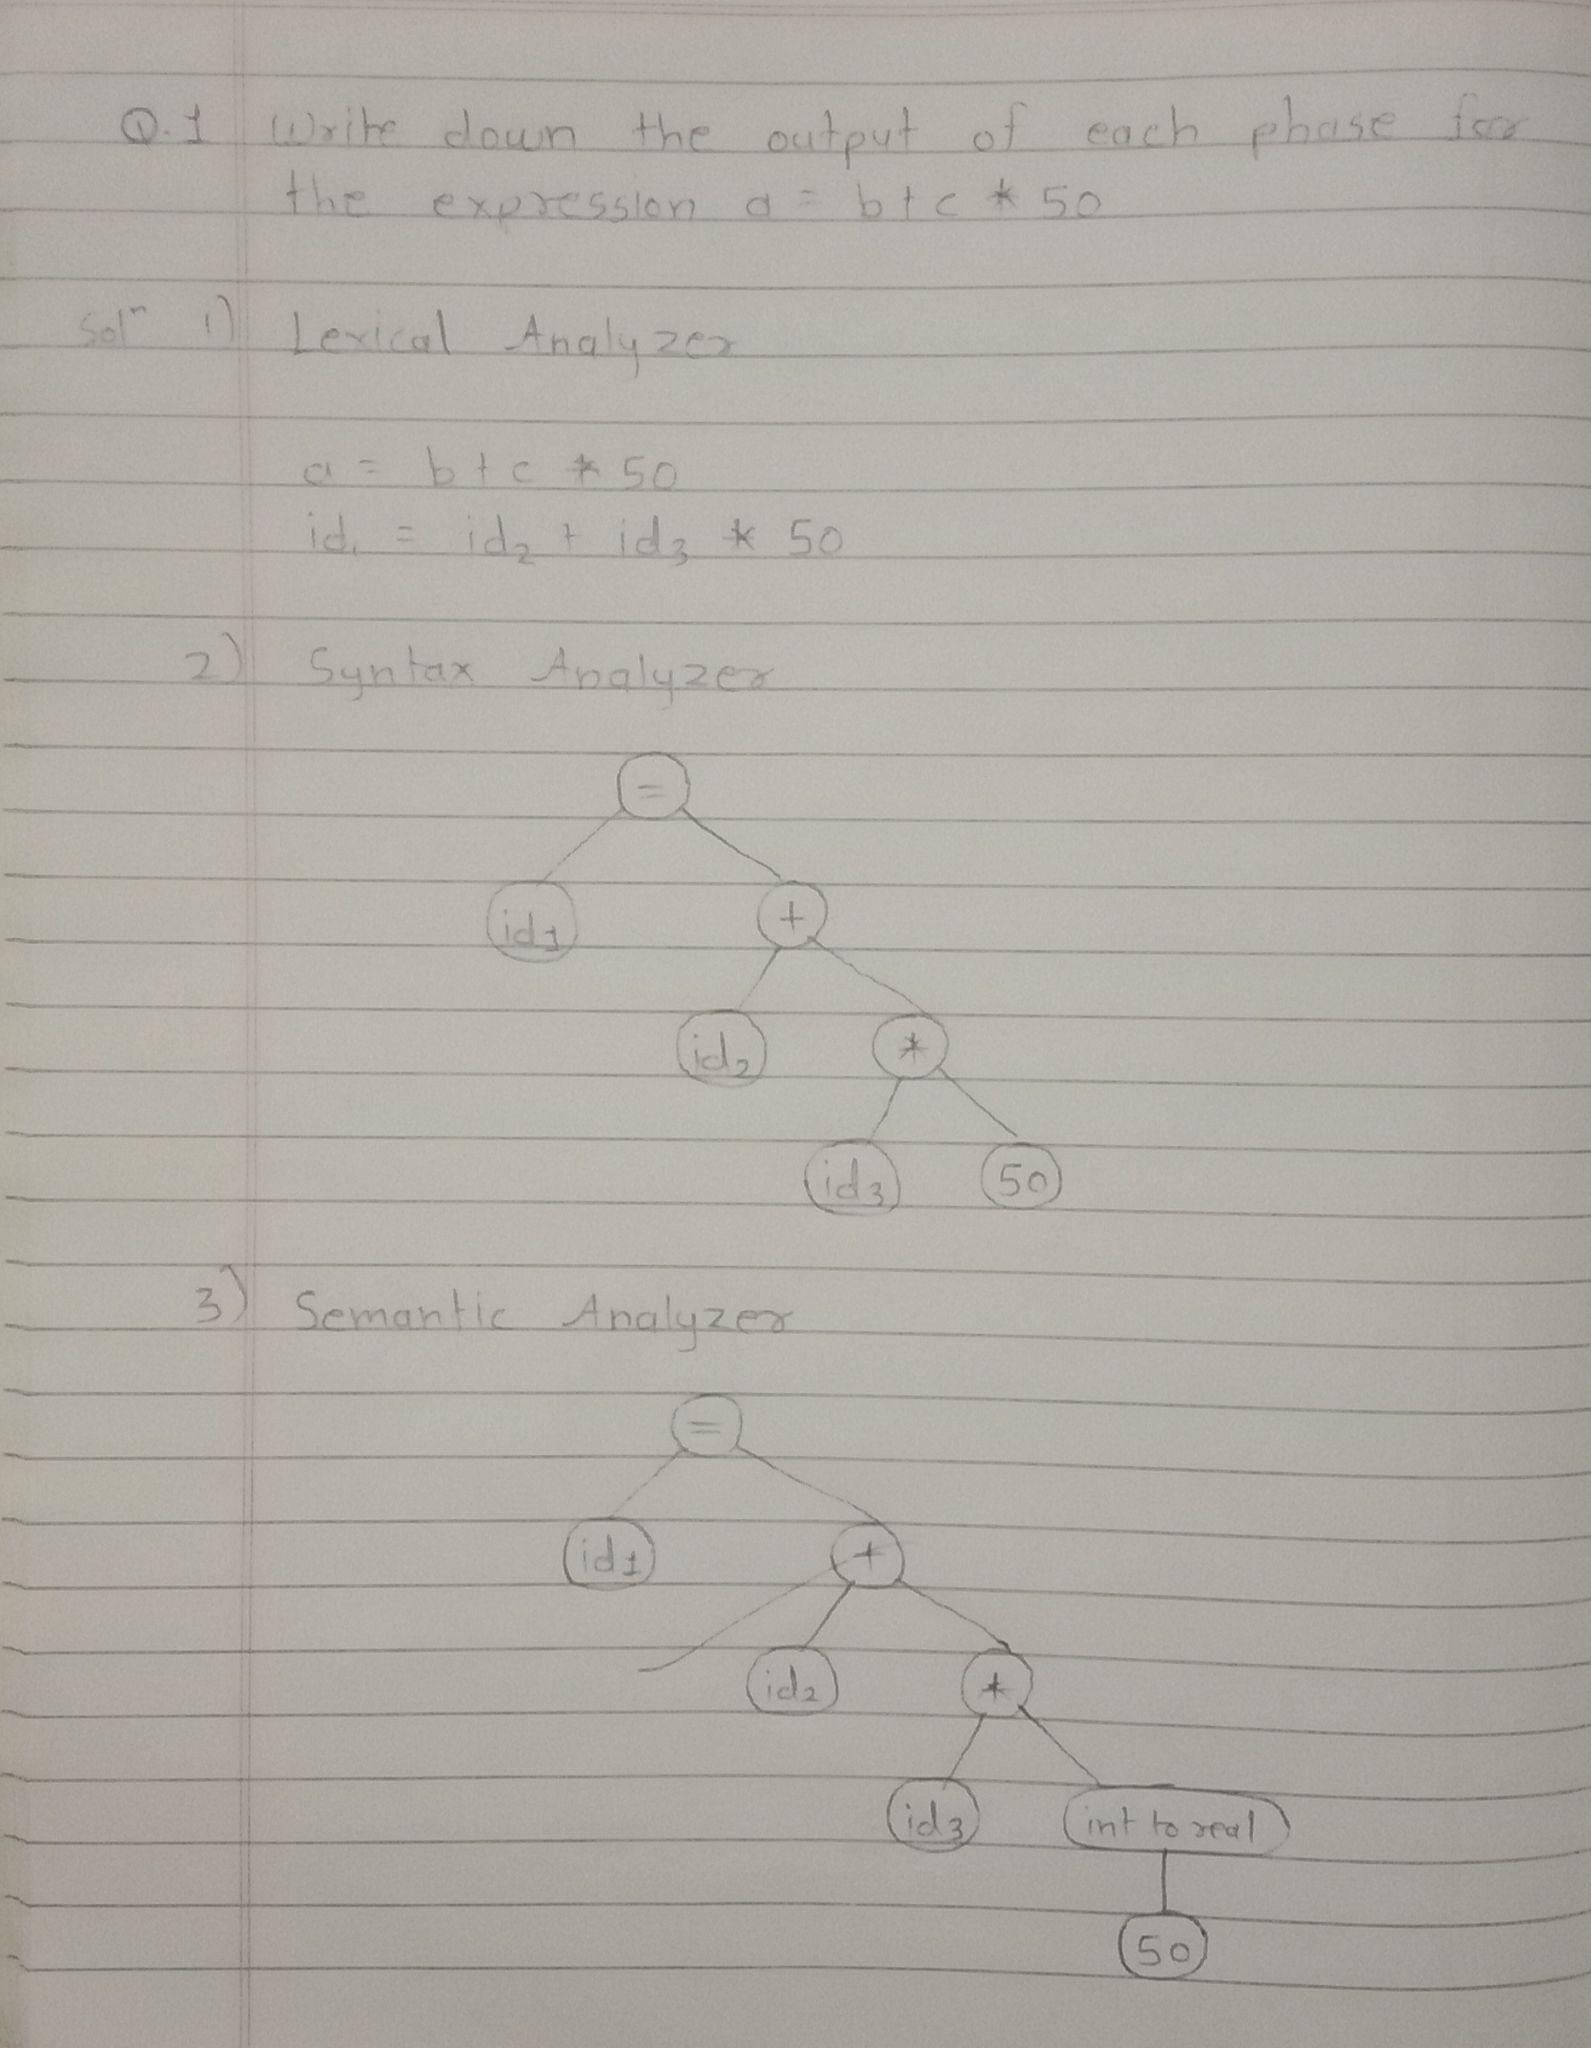 Q.1 Write down the output of each phase for
the expression a = b + c * 50
Solⁿ 1) Lexical Analyzer
a = b + c * 50
id₁ = id₂ + id₃ * 50
2) Syntax Analyzer
=
id₁ +
id₂ *
id₃ 50
3) Semantic Analyzer
=
id₁ +
id₂ *
id₃ int to real
50